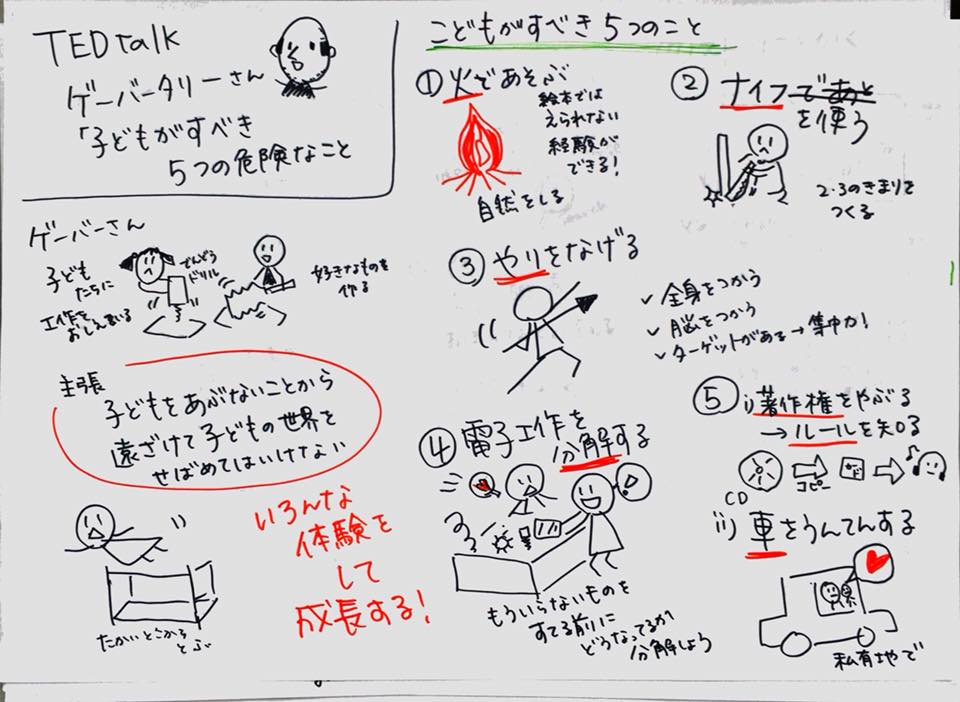 TED talk
ゲーバータリーさん
「子どもがすべき
5つの危険なこと
ゲーバーさん
子ども
たちに
工作を
おしえている
でんどう
ドリル
好きなものを
作る
主張
子どもをあぶないことから
遠ざけて子どもの世界を
せばめてはいけない
たかいところから
とぶ
いろんな
体験を
して
成長する!
こどもがすべき5つのこと
① 火であそぶ
絵本では
えられない
経験が
できる!
自然をしる
② ナイフであそ
を使う
2・3のきまりを
つくる
③ やりをなげる
✓ 全身をつかう
✓ 脳をつかう
✓ ターゲットがある→集中力!
④ 電子工作を
分解する
もういらないものを
すてる前に
どうなってるか
分解しよう
⑤ i) 著作権をやぶる
→ルールを知る
CD
コピー
ii) 車をうんてんする
私有地で